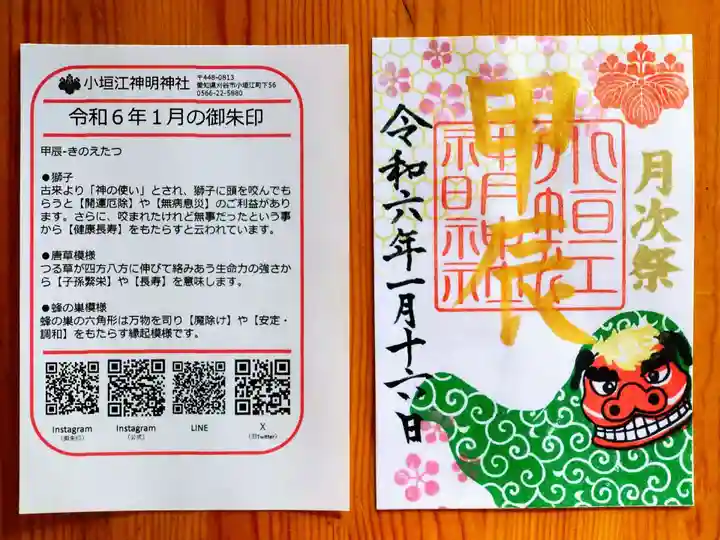 小垣江神明神社
〒448-0813
愛知県刈谷市小垣江町下56
0566-22-5880
令和6年1月の御朱印
甲辰-きのえたつ
●獅子
古来より「神の使い」とされ、獅子に頭を咬んでも
らうと【開運厄除】や【無病息災】のご利益があり
ます。さらに、咬まれたけれど無事だったという事
から【健康長寿】をもたらすと云われています。
●唐草模様
つる草が四方八方に伸びて絡みあう生命力の強さか
ら【子孫繁栄】や【長寿】を意味します。
●蜂の巣模様
蜂の巣の六角形は万物を司り【魔除け】や【安定・
調和】をもたらす縁起模様です。
Instagram
(御朱印)
Instagram
(公式)
LINE
X
(旧Twitter)
月次祭
小垣江
神明神社
甲辰
令和六年一月十六日